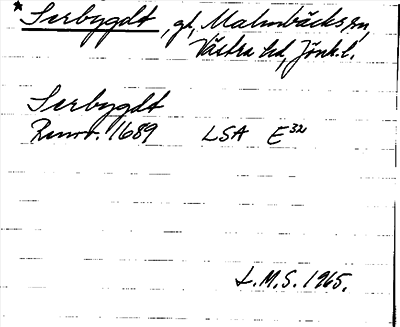 * Serbygdt, gd, Malmbäcks sn,
Västra hd, Jönk. l.
Serbygdt
Renov. 1689 LSA E32
L.M.S. 1965.